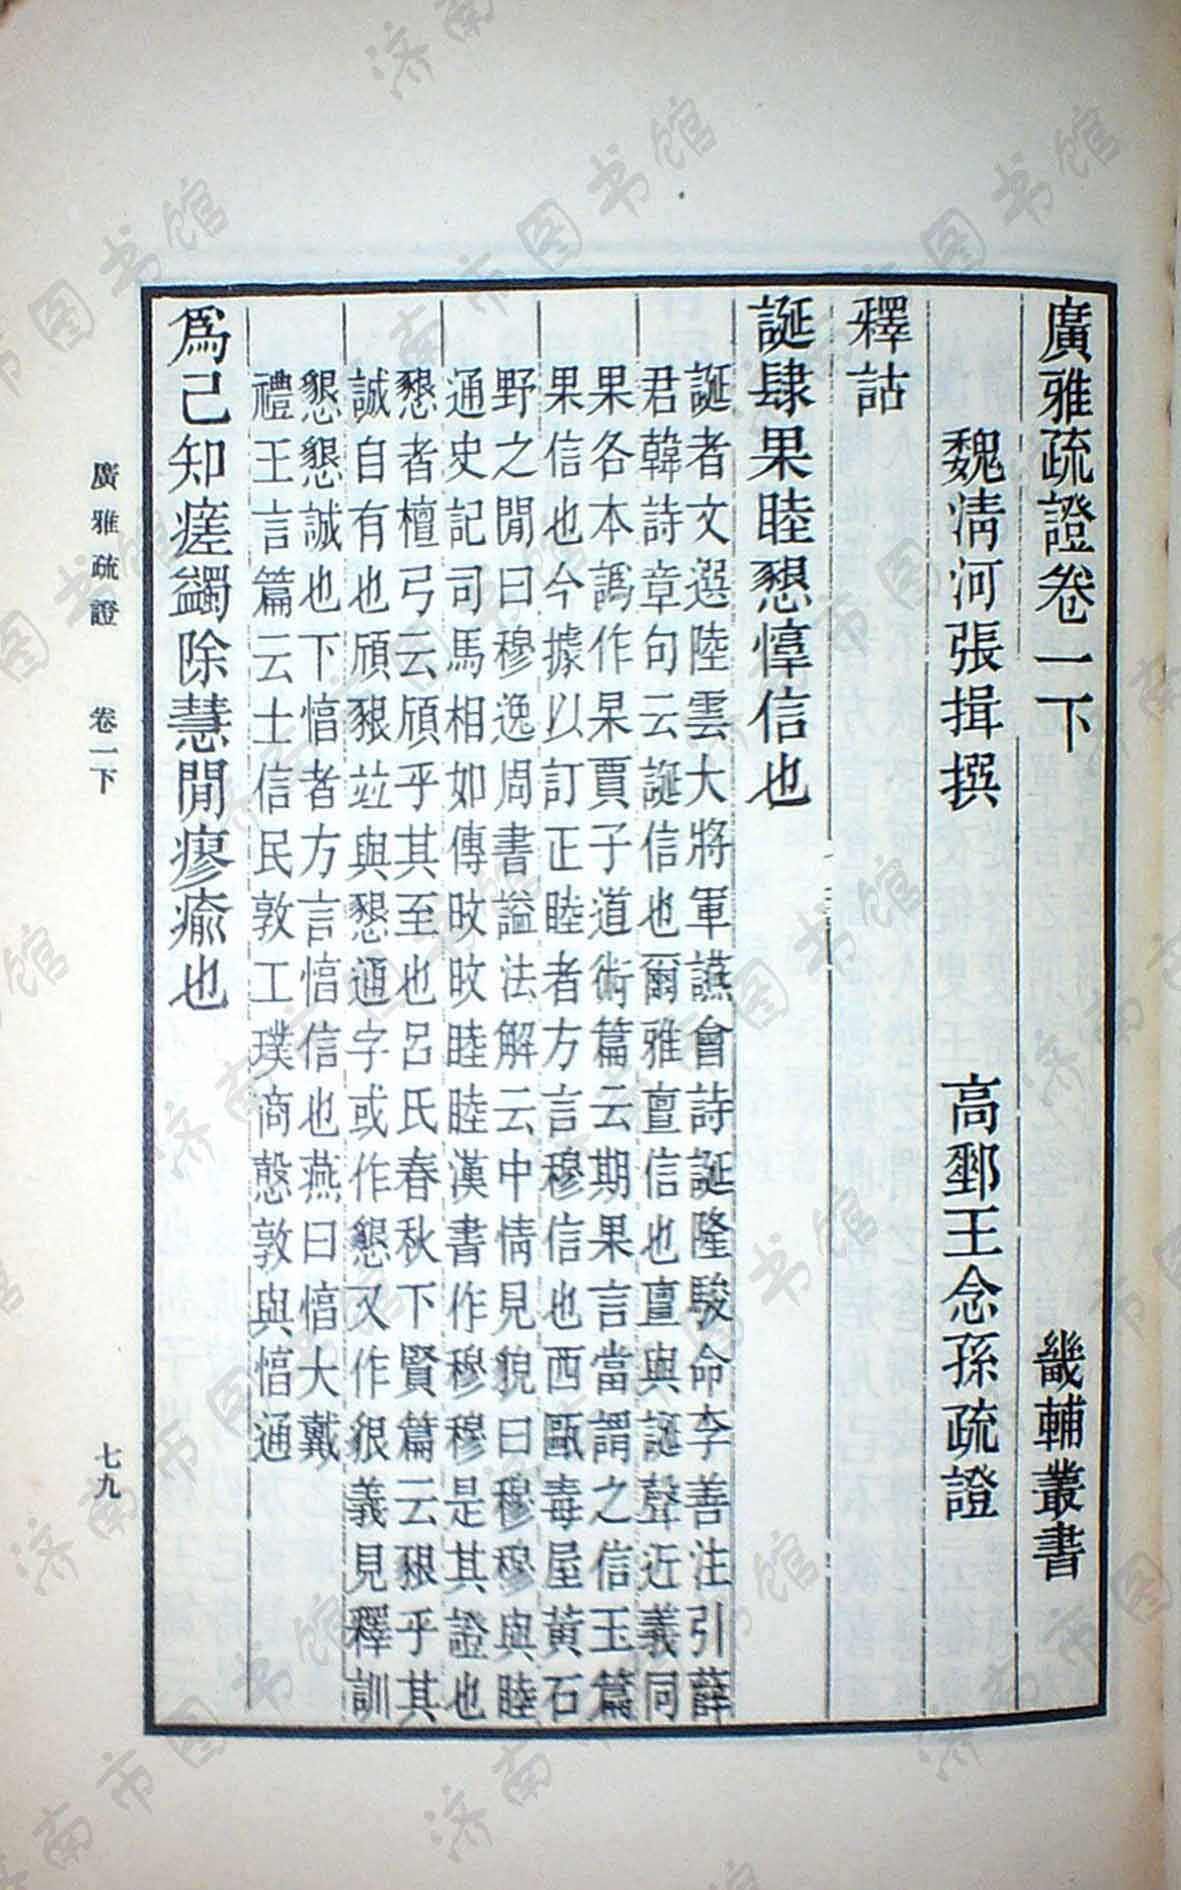 廣雅疏證卷一下 畿輔叢書
魏清河張揖撰 高郵王念孫疏證
釋詁
誕肆果睦懇惇信也
誕者文選陸雲大將軍讌會詩誕隆駿命李善注引薛
君韓詩章句云誕信也爾雅亶信也亶與誕聲近義同
果各本譌作杲賈子道術篇云期果言當謂之信玉篇
果信也今據以訂正睦者方言穆信也西甌毒屋黃石
野之閒曰穆逸周書謚法解云中情見貌曰穆穆與睦
通史記司馬相如傳旼旼睦睦漢書作穆穆是其證也
懇者檀弓云頎乎其至也呂氏春秋下賢篇云豤乎其
誠自有也頎豤竝與懇通字或作懇又作很義見釋訓
懇懇誠也下惇者方言惇信也燕曰惇大戴
禮王言篇云士信民敦工璞商慤敦與惇通
爲已知瘥蠲除慧閒瘳瘉也
廣雅疏證 卷一下 七九
济南市图书馆